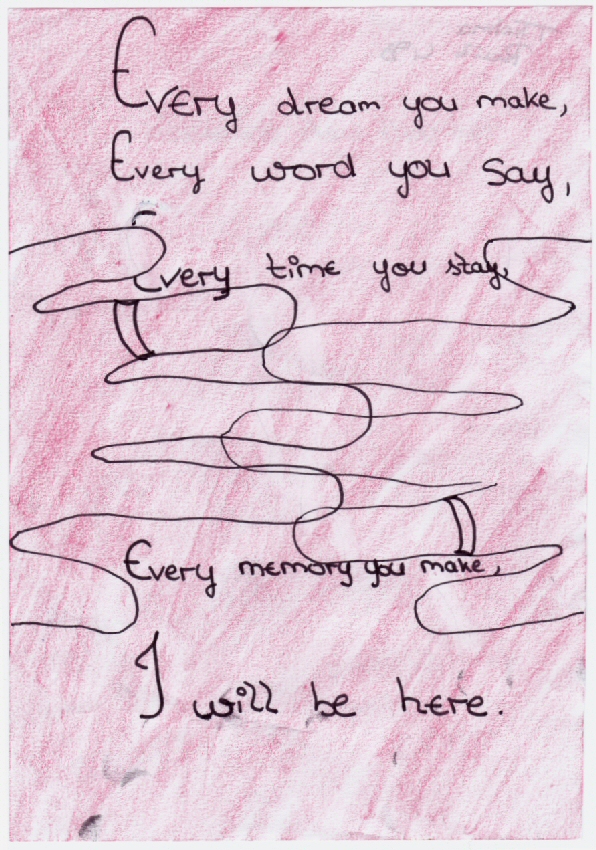 Every dream you make,
Every word you say,
Every time you stay,
Every memory you make,
I will be here.